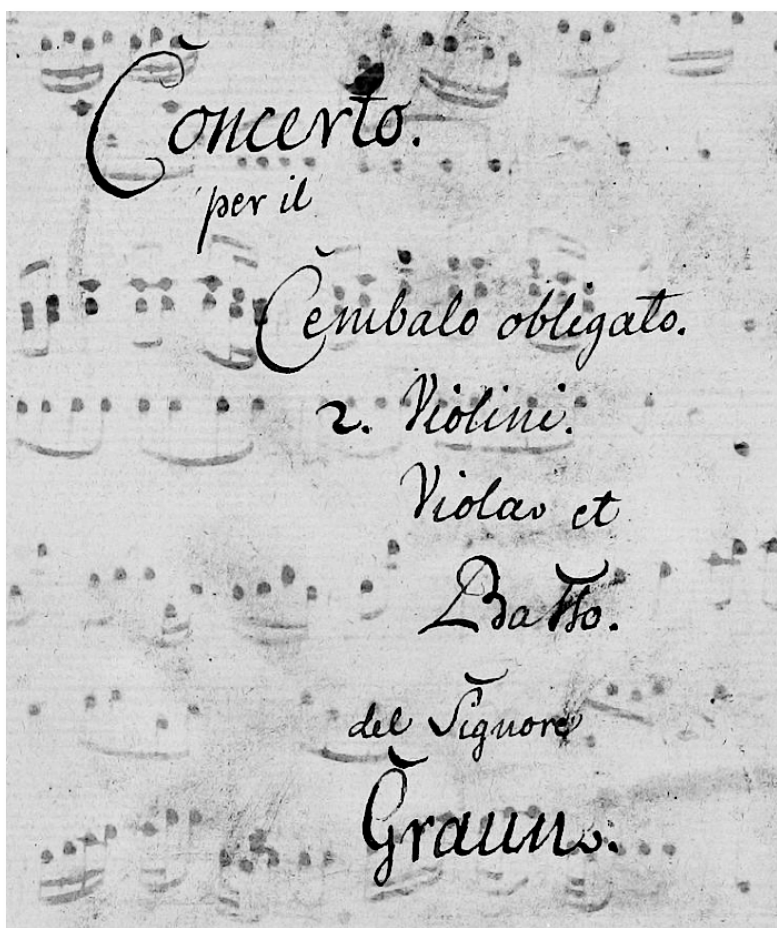 Concerto.
per il
Cembalo obligato.
2. Violini.
Viola et
Basso.
del Signore
Graun.